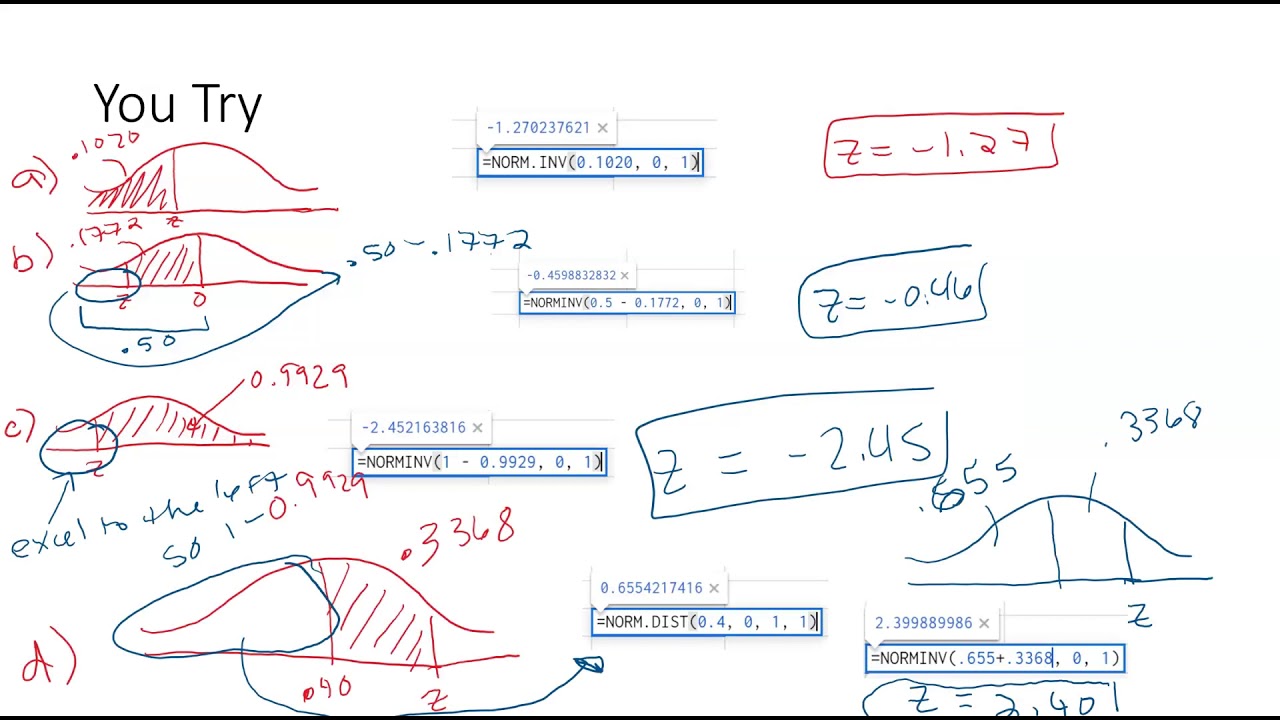 You Try
a)
.1020
z
-1.270237621 ×
=NORM.INV(0.1020, 0, 1)
z = -1.27
b)
.1772
z 0
.50
.50 - .1772
-0.4598832832 ×
=NORMINV(0.5 - 0.1772, 0, 1)
z = -0.46
c)
0.9929
z
excel to the left
so 1-0.9929
-2.452163816 ×
=NORMINV(1 - 0.9929, 0, 1)
z = -2.45
d)
.3368
.40 z
0.6554217416 ×
=NORM.DIST(0.4, 0, 1, 1)
.655
.3368
z
2.399889986 ×
=NORMINV(.655+.3368, 0, 1)
z = 2.40